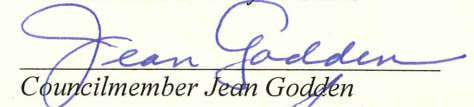 Jean Godden
Councilmember Jean Godden